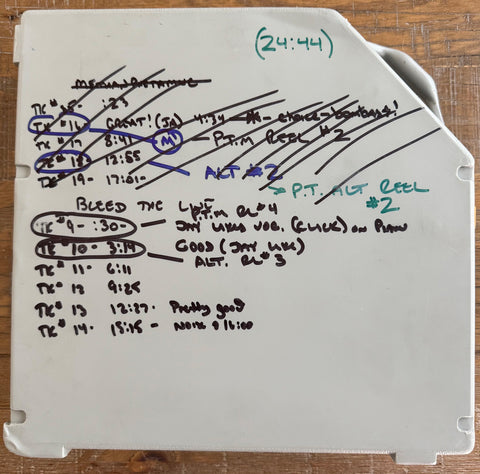 (24:44)
TK# 15- :23
TK #16 GREAT! (JA) 4:34
TK #17 8:41 M - P.T.M REEL #2
TK #18 12:55 ALT #2
TK# 19- 17:01-
P.T. ALT REEL #2
BLEED THE LINE
P.T.M RL #4
TK #9- :30- JAY LIKES VOC. (CLICK) ON
TK# 10- 3:19 GOOD (JAY LIKE)
ALT. RL #3
TK# 11- 6:11
TK# 12 9:25
TK# 13 12:27. Pretty good
TK# 14- 15:15-